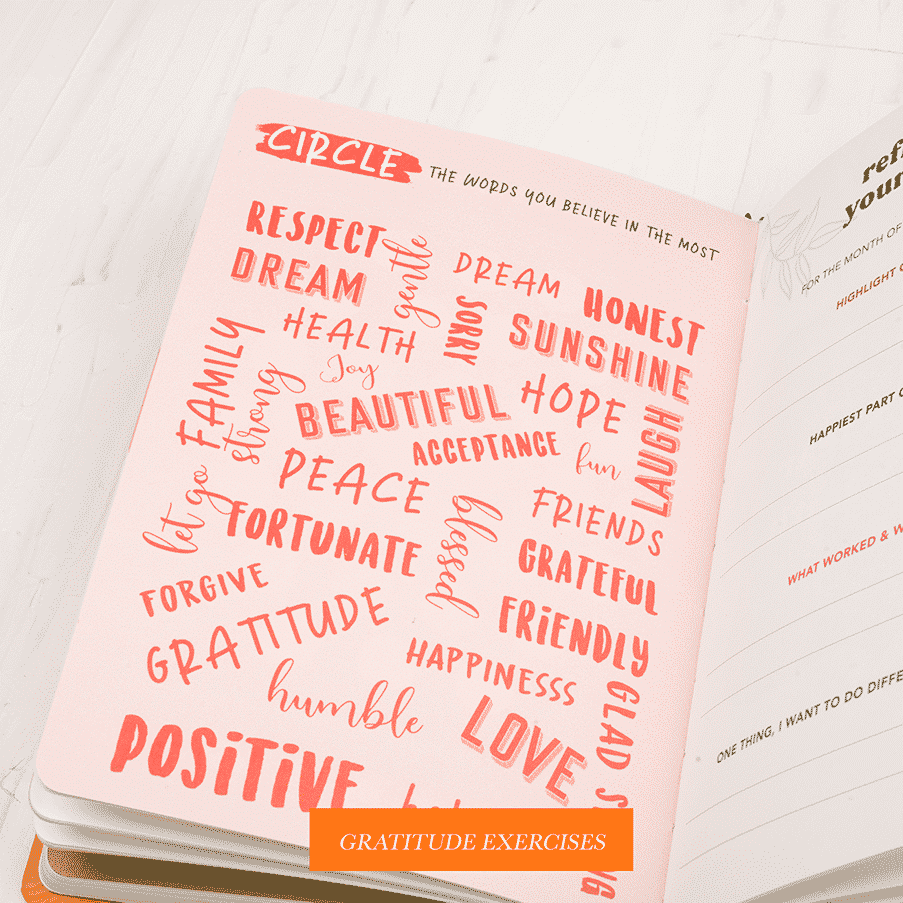 CIRCLE THE WORDS YOU BELIEVE IN THE MOST
RESPECT
gentle
DREAM
DREAM
HONEST
HEALTH
SORRY
SUNSHINE
Joy
FAMILY
strong
BEAUTIFUL
HOPE
LAUGH
ACCEPTANCE
fun
PEACE
let go
FORTUNATE
blessed
FRIENDS
GRATEFUL
FORGIVE
FRIENDLY
GRATITUDE
HAPPINESSS
humble
GLAD
LOVE
POSITIVE
FOR THE MONTH OF
HIGHLIGHT
HAPPIEST PART
WHAT WORKED &
ONE THING, I WANT TO DO
GRATITUDE EXERCISES